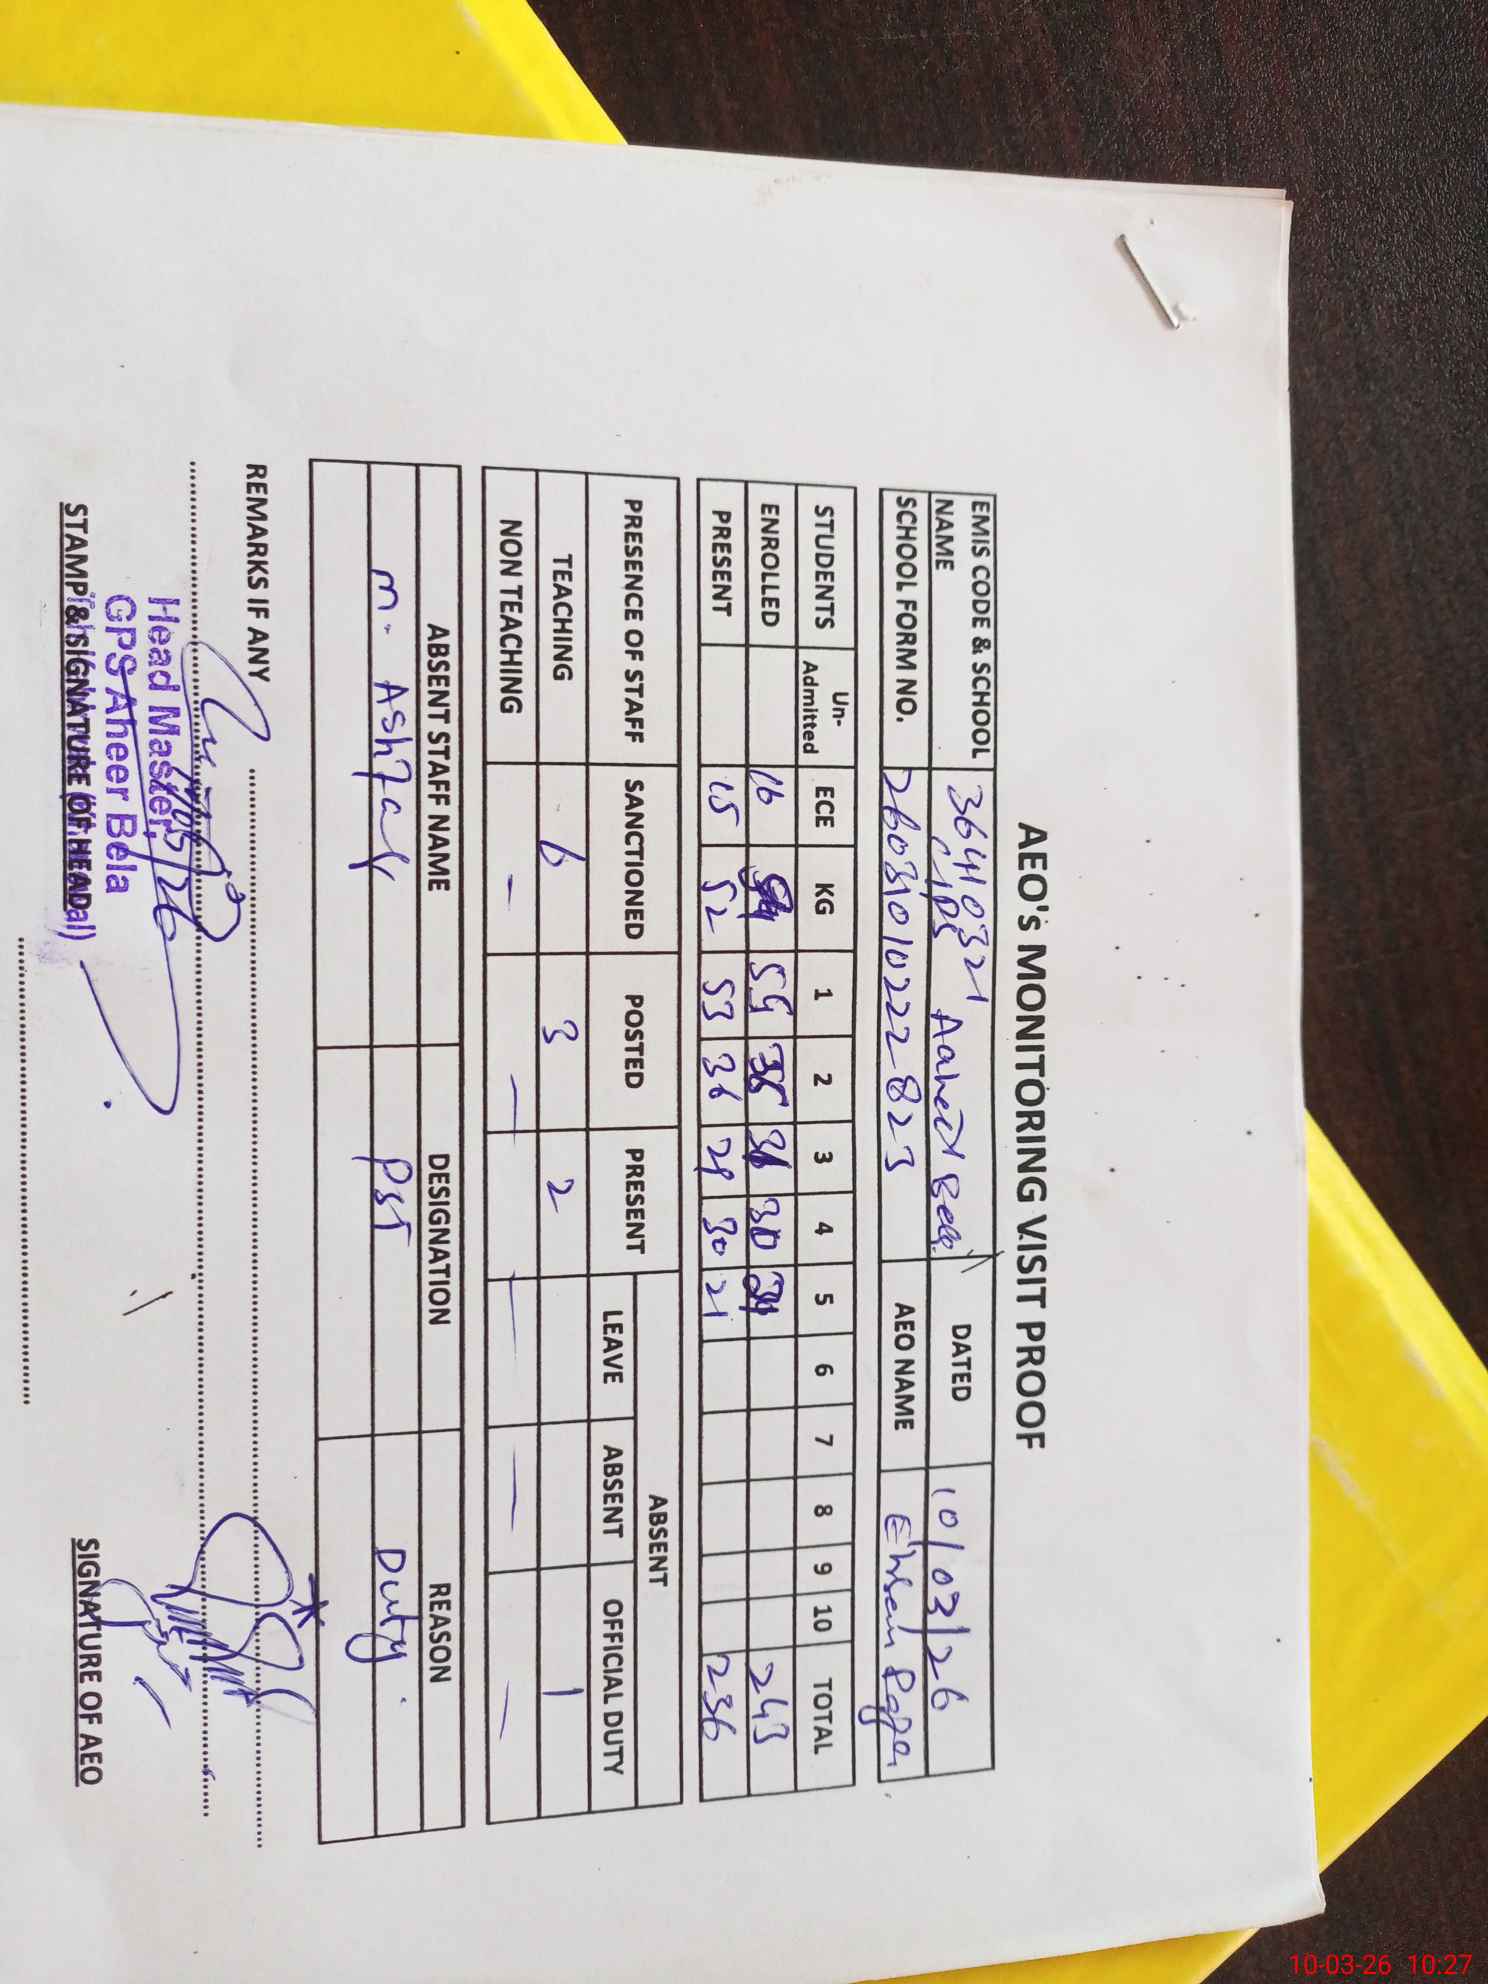 AEO's MONITORING VISIT PROOF
EMIS CODE & SCHOOL NAME 36410321 GPS Aaheer Bela DATED 10/03/26
SCHOOL FORM NO. 2603101022 2823 AEO NAME Ehsan
STUDENTS Un-Admitted ECE KG 1 2 3 4 5 6 7 8 9 10 TOTAL
ENROLLED 16 55 36 30 243
PRESENT 15 52 53 36 29 30 21 236
PRESENCE OF STAFF SANCTIONED POSTED PRESENT ABSENT
LEAVE ABSENT OFFICIAL DUTY
TEACHING 6 3 2 1
NON TEACHING — — — — — —
ABSENT STAFF NAME DESIGNATION REASON
M. Ashfaq PST Duty
REMARKS IF ANY
Head Master,
GPS Aheer Bela
STAMP & SIGNATURE OF HEAD
SIGNATURE OF AEO
10-03-26 10:27